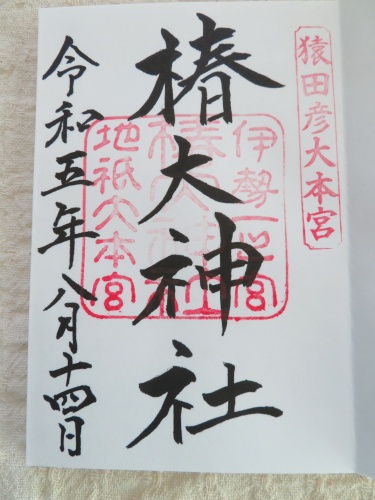 猿田彦大本宮
椿大神社
伊勢一之宮
椿大神社
地祇大本宮
令和五年八月十四日